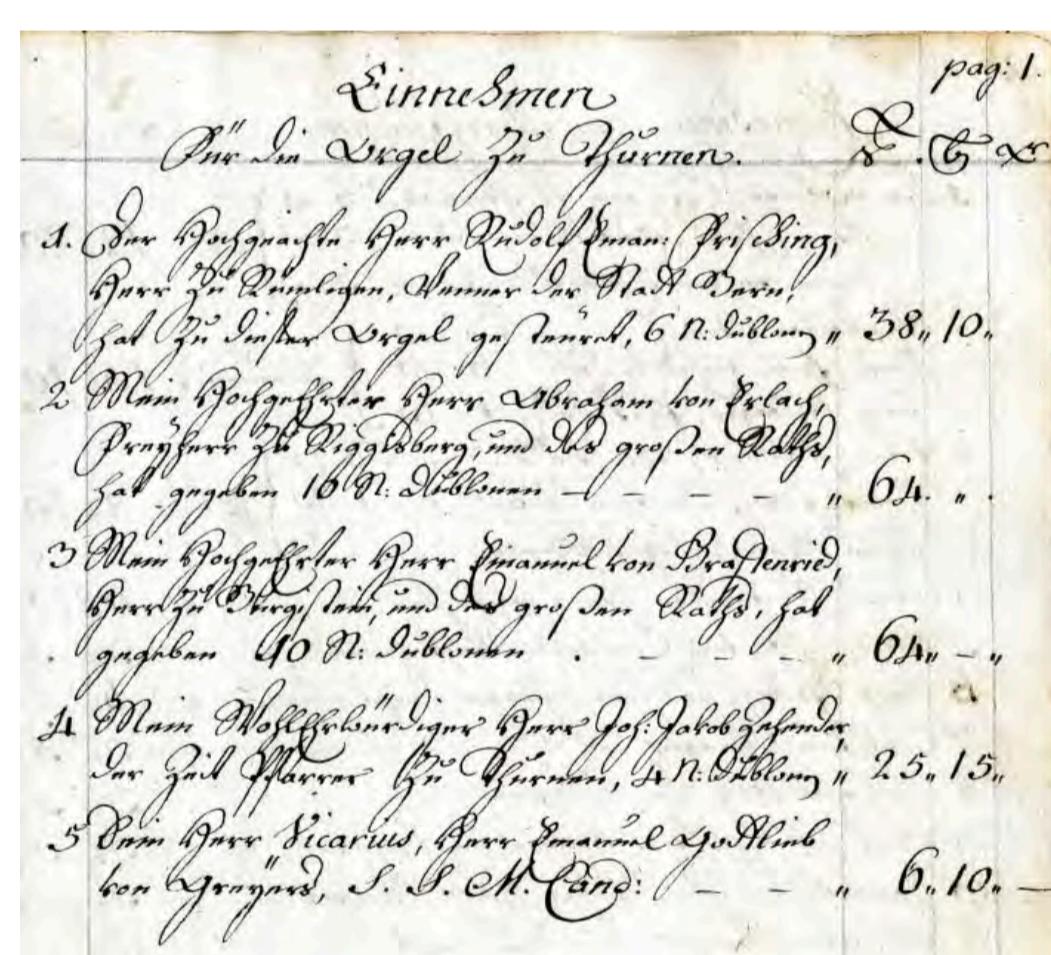 pag: 1.
Einnehmen
Für die Orgel zu Thurnen.
1. Der Hochgeachte Herr Rudolf Eman: Frisching,
Herr zu Rümligen, Venner der Stadt Bern,
hat zu dießer Orgel gesteüret, 6 N: Dublonen „ 38„ 10„
2 Mein Hochgeehrter Herr Abraham von Erlach,
Freyherr zu Riggisberg, und des großen Raths,
hat gegeben 10 N: Dublonen – – – – „ 64. „ .
3 Mein Hochgeehrter Herr Emanuel von Graffenried,
Herr zu Burgistein, und des großen Raths, hat
gegeben 10 N: Dublonen . – – – „ 64„ – „
4 Mein WohlEhrwürdiger Herr Joh: Jakob Zehender,
der Zeit Pfarrer zu Thurnen, 4 N: Dublonen „ 25„ 15„
5 Sein Herr Vicarius, Herr Emanuel Gottlieb
von Greyers, S. S. M. Cand: – – „ 6„ 10„ –